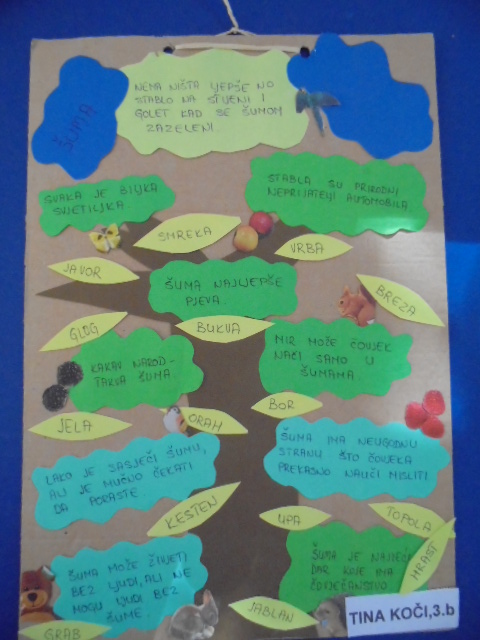 ŠUMA
NEMA NIŠTA LJEPŠE NO
STABLO NA STIJENI I
GOLET KAD SE ŠUMOM
ZAZELENI.
SVAKA JE BILJKA
SVJETILJKA.
STABLA SU PRIRODNI
NEPRIJATELJI AUTOMOBILA.
SMREKA
VRBA
JAVOR
ŠUMA NAJLJEPŠE
PJEVA.
BREZA
GLOG
BUKVA
KAKAV NAROD-
TAKVA ŠUMA.
MIR MOŽE ČOVJEK
NAĆI SAMO U
ŠUMAMA.
JELA
ORAH
BOR
LAKO JE SASJEĆI ŠUMU,
ALI JE MUČNO ČEKATI
DA PORASTE
ŠUMA IMA NEUGODNU
STRANU ŠTO ČOVJEKA
PREKASNO NAUČI MISLITI
KESTEN
LIPA
TOPOLA
HRAST
ŠUMA MOŽE ŽIVJETI
BEZ LJUDI, ALI NE
MOGU LJUDI BEZ
ŠUME.
ŠUMA JE NAJVEĆI
DAR KOJE IMA
ČOVJEČANSTVO
GRAB
JABLAN
TINA KOČI,3.b